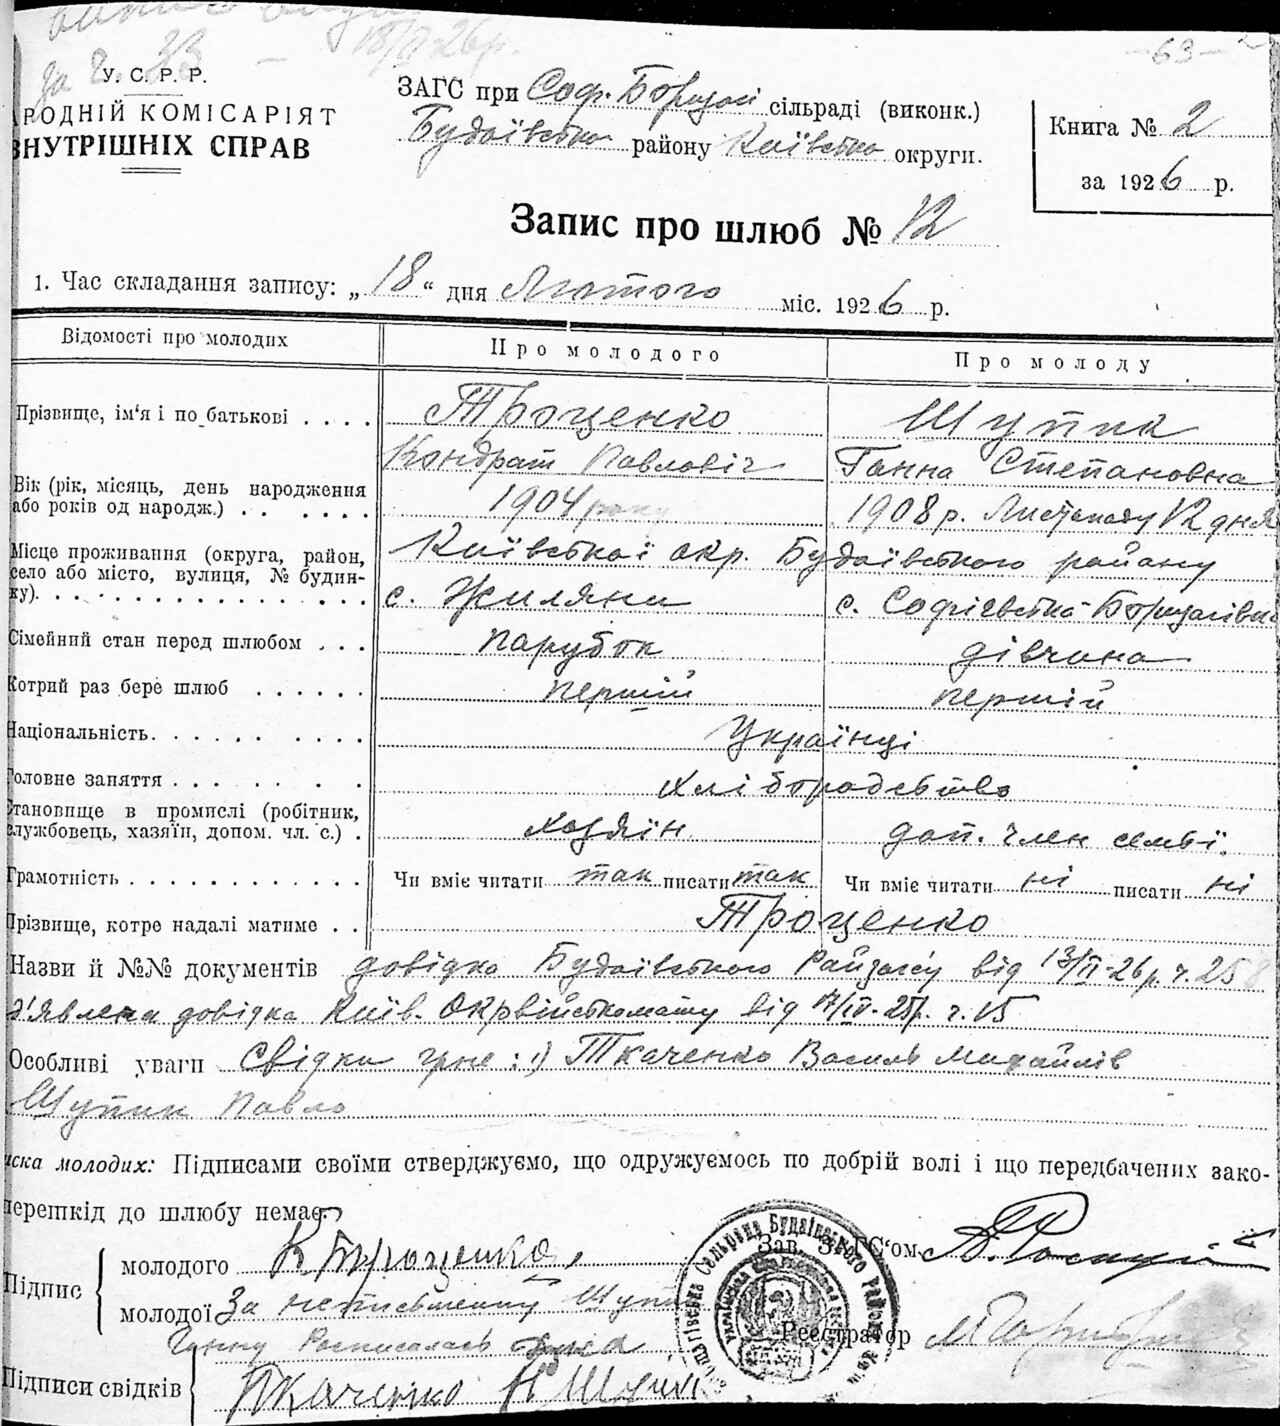 за ч. 33 – 18/II-26р.
– 63 –
У. С. Р. Р.
РОДНІЙ КОМІСАРІЯТ
ВНУТРІШНІХ СПРАВ
ЗАГС при Соф. Борщаг сільраді (виконк.)
Будаївсько району Київсько округи.
Книга № 2
за 1926 р.
Запис про шлюб № 12
1. Час складання запису: „ 18 “ дня Лютого міс. 1926 р.
Відомості про молодих Про молодого Про молоду
Прізвище, ім'я і по батькові . . . . Троценко Шупик
Кондрат Павловіч Ганна Степановна
Вік (рік, місяць, день народження
або років од народж.) . . . . . . 1904 року 1908 р. Листопаду 12 дня
Місце проживання (округа, район,
село або місто, вулиця, № будин-
ку). Київської окр. Будаївського району
с. Жиляни с. Софієвська-Борщагівка
Сімейний стан перед шлюбом . . . парубок дівчина
Котрий раз бере шлюб . . . . . . першій першій
Національність. Українці
Головне заняття . . . . . . . . хліборобство
Становище в промислі (робітник,
службовець, хазяїн, допом. чл. с.) . хозяїн доп. член семьї.
Грамотність . . . . . . . . . . . . Чи вміє читати так писати так Чи вміє читати ні писати ні
Прізвище, котре надалі матиме . . Троценко
Назви й №№ документів довідка Будаївського Райзагсу від 13/II-26 р. ч. 258
з'явлена довідка Київ. Окрвійськомату від 17/IV-25р. ч. 15
Особливі уваги Свідки гр-не: 1) Ткаченко Василь Михайлів
Шупик Павло
иска молодих: Підписами своїми стверджуємо, що одружуємось по добрій волі і що передбачених зако-
перешкід до шлюбу немає.
Підпис молодого К Троценко
Зав. ЗАГС'ом
молодої За неписьменну Шупик
Реєстратор
Ганну Росписалась
Підписи свідків Ткаченко Шупик